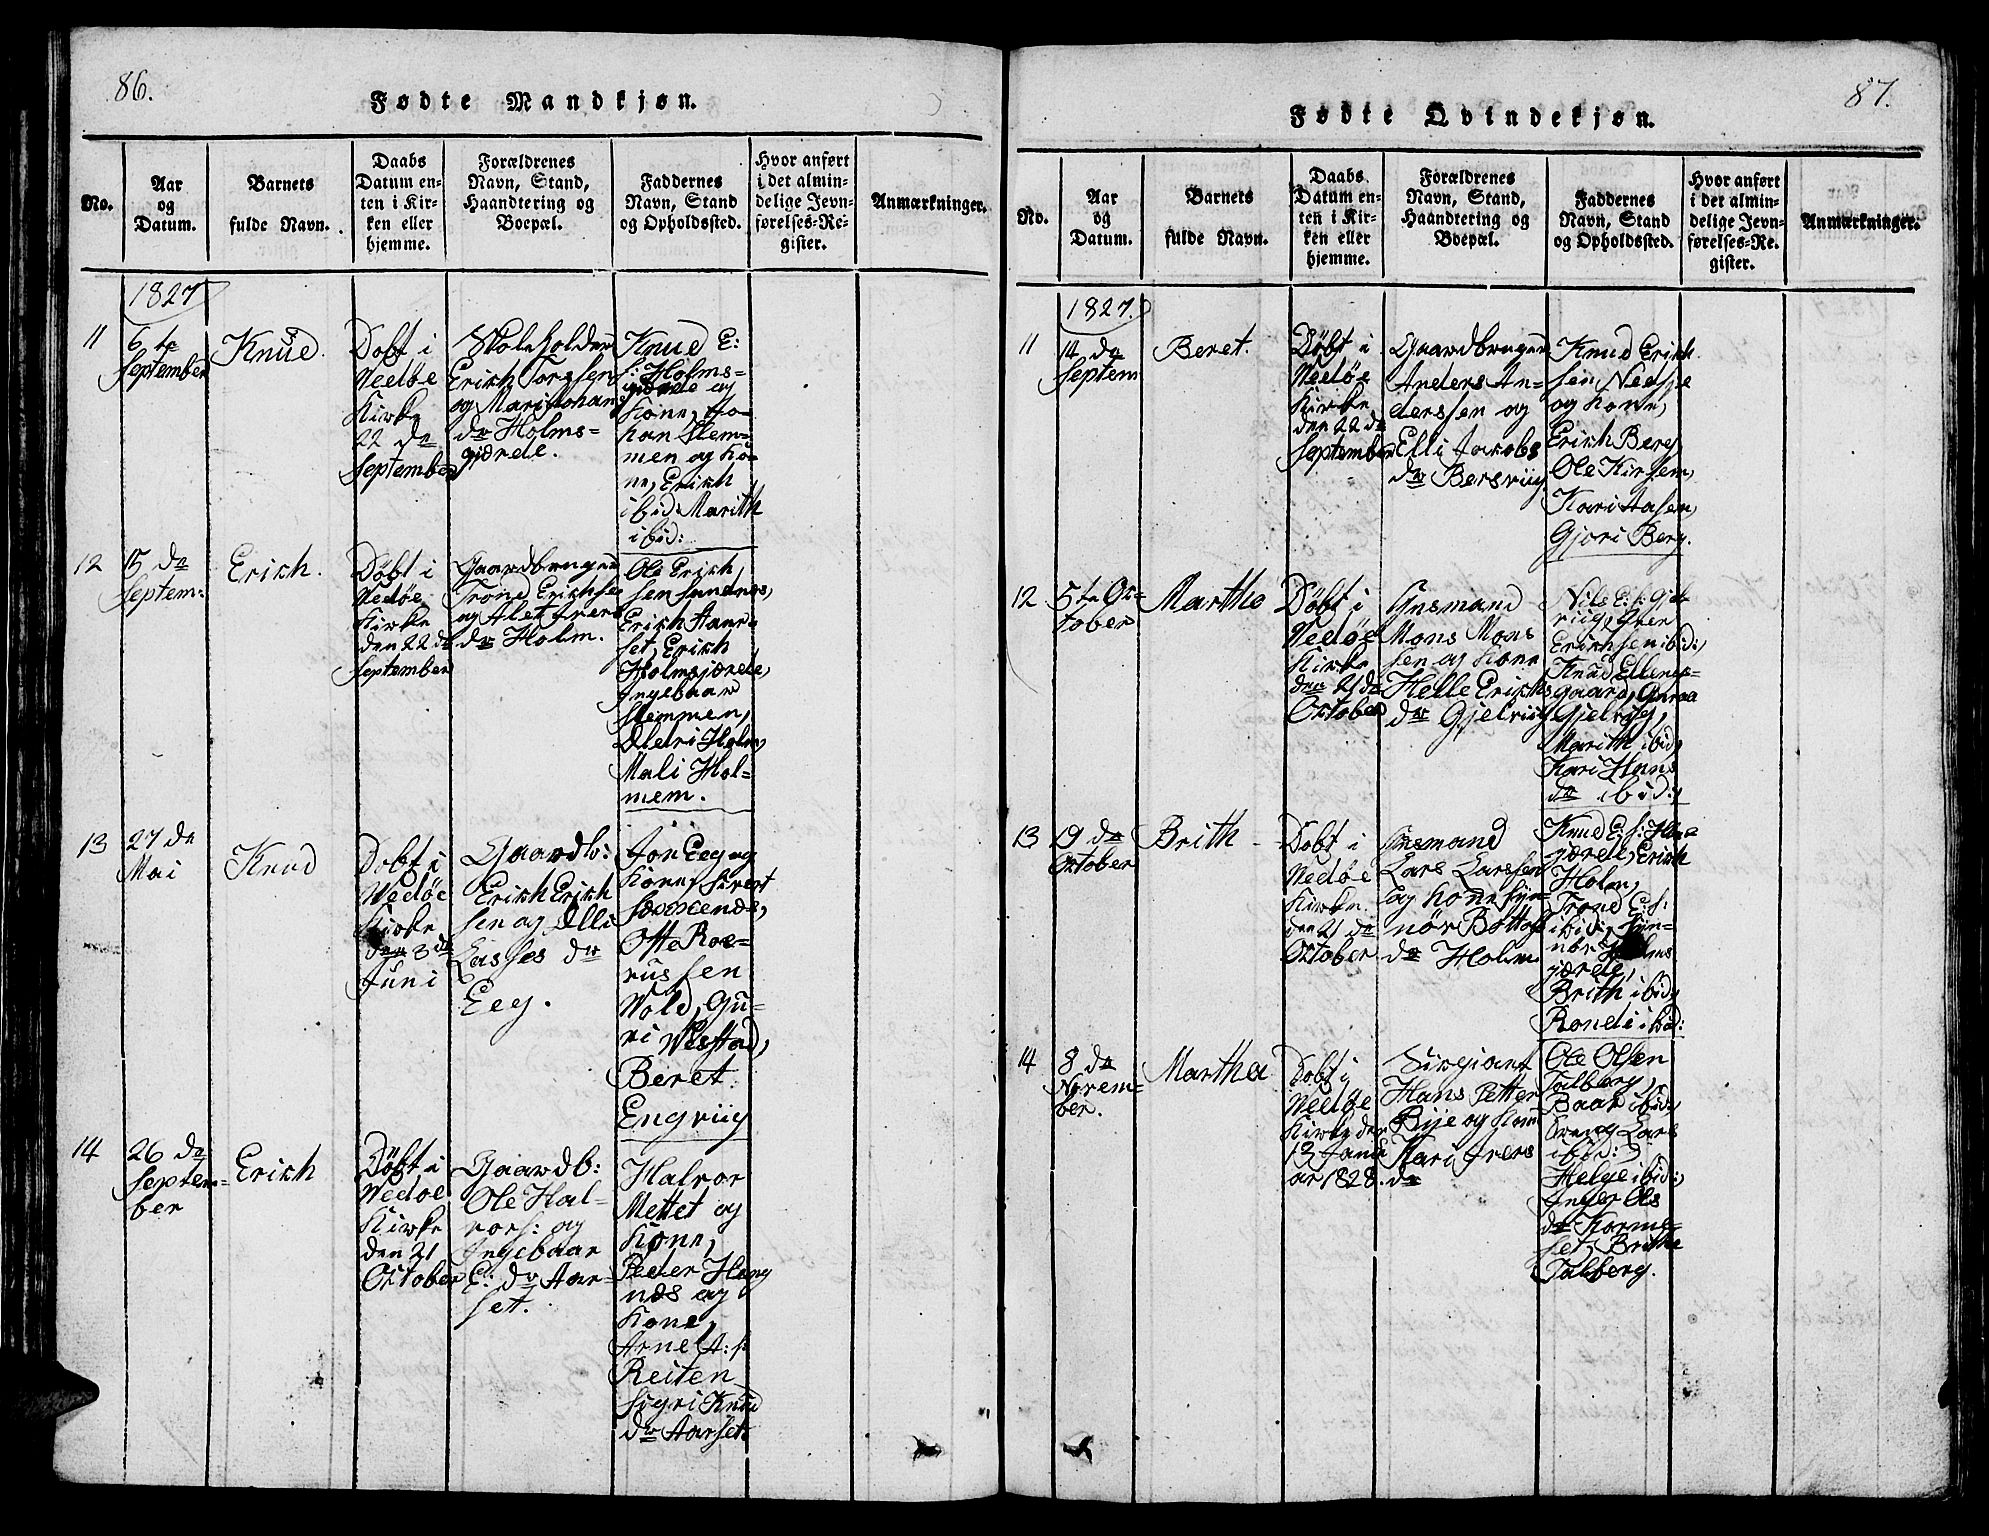 86.
Fødte Mandkjøn.
No.
Aar
og
Datum.
Barnets
fulde Navn.
Daabs
Datum en-
ten i Kir-
ken eller
hjemme.
Forældrenes
Navn, Stand,
Haandtering og
Boepæl.
Faddernes
Navn, Stand
og Opholdssted.
Hvor anført
i det almin-
delige Jevn-
førelses-Re-
gister.
Anmærkninger.
1827
11
6 te
September
Knud.
Dobt i
Vedøe
Kirke
22 de
September
Skoleholder
Erich
og Mari Johans
dr Holms-
gjærde.
Knud E:
s: Holms-
gjærde og
Kone, Jo-
han Stem-
men og Ko-
ne, Erich
ibid: Marith
ibid:
12
15 de
Septem:
Erich.
Döbt i
Vedøe
Kirke
den 22 de
September
Gaardbruger
Trond Erichsen
og Alet Ivers
dr Holm.
Ole Erich
sen Sandnes,
Erich
set, Erich
Holmsjærde,
Ingebaar
Stemmen,
Holm,
Mali Hol-
mem.
13
27 de
Mai
Knud
Dobt i
Wedöe
Kirke
den 3 de
Juni
Gaardb:
Erich Erich
sen og Elli
Lasses dr
Eeg.
Jon Eeg og
Kone, Sivert
Offe Roe-
russen
Wold, Gu-
ri
Beret
Engviig
14
26 de
Septem-
ber
Erich
Döbt i
Wedoe
Kirke
den 21
October
Gaardb:
Ole Hal-
vors: og
Ingebaar
E: dr Aar-
set.
Halvor
Mettet og
Kone,
Peder Haug
nes og
Kone,
Arne A: s:
Reiten
Sigri Knud
dr Aarset
87.
Fødte Qvindekjøn.
No.
Aar
og
Datum.
Barnets
fulde Navn.
Daabs
Datum en-
ten i Kir-
ken eller
hjemme.
Forældrenes
Navn, Stand,
Haandtering og
Boepæl.
Faddernes
Navn, Stand
og Opholdssted.
Hvor anført
i det almin-
delige Jevn-
førelses-Re-
gister.
Anmærkninger.
1827.
11
14 de
Septem
Beret.
Döbt i
Vedöe
Kirke
den 22 de
September
Gaardbruger
Anders An-
derssen og
Elli Jacobs
dr Bersviig
Knud Erich
sen
og Kone,
Erich Berg
Ole
Kari Aasen,
Gjøri Berg.
12
5te Oc-
tober
Martho
Döbt i
Vedöe
Kirke
den 21 de
October
Husmand
Mons Mons
sen og Kone
Helle Erichs
dr Gjelviig
Nils E: s: Gjel
viig, Iver
Erichsen ibid:,
Knud Ellenes-
gaard, Guroa
Gjelvig,
Marith ibid,
Kari Hans
dr ibid:,
13
19 de
October
Brith
Dobt i
Vedöe
Kirke
den 21 de
October
Husmand
Lars Larssen
og Kone Syn-
nör
dr Holm
Knud E: s: Hlm-
gjærde, Erich
Holm,
Trond E: s:
ibid:, Syn-
nör Holms
gjærde,
Brith ibid:
Rondi ibid:
14
8 de
Novem-
ber.
Martha
Dobt i
Vedöe
Kirke den
13 Janu
ar 1828.
Sirgiant
Hans Petter
Bije og Kone
Mari Ivers
dr
Ole Olsen
Talberg,
Baar ibid:,
Lars
ibid:
Helge ibid:,
Inger Ols
dr Korme-
set, Brithe
Talberg.